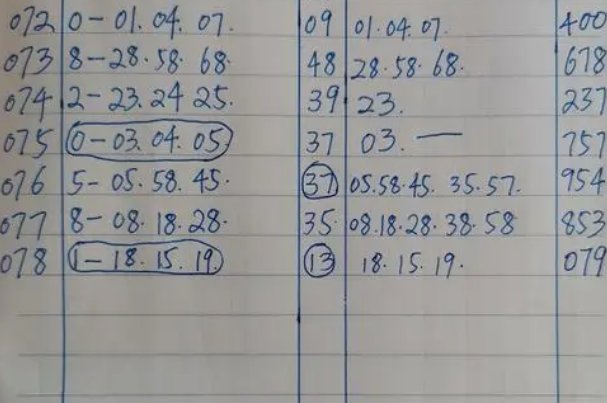 072 0-01.04.07. 09 01.04.07. 400
073 8-28.58.68. 48 28.58.68. 678
074 2-23.24 25. 39 23. 237
075 0-03.04.05 37 03.— 757
076 5-05.58.45. 37 05.58.45. 35.57. 954
077 8-08.18.28. 35 08.18.28.38.58 853
078 1-18.15.19. 13 18.15.19. 079